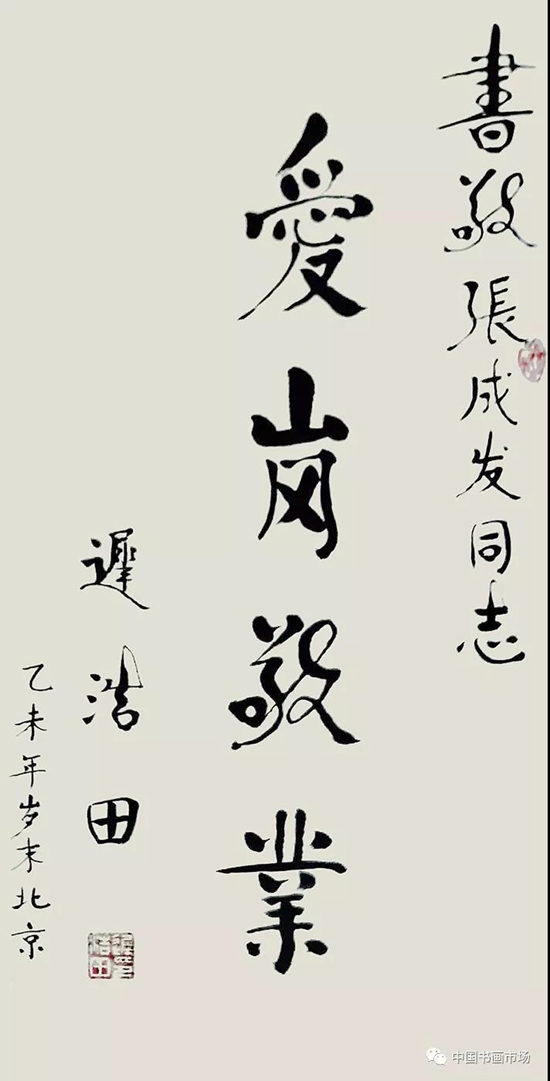 書敬張成发同志
愛岗敬業
遲浩田
乙未年岁末北京
中国书画市场